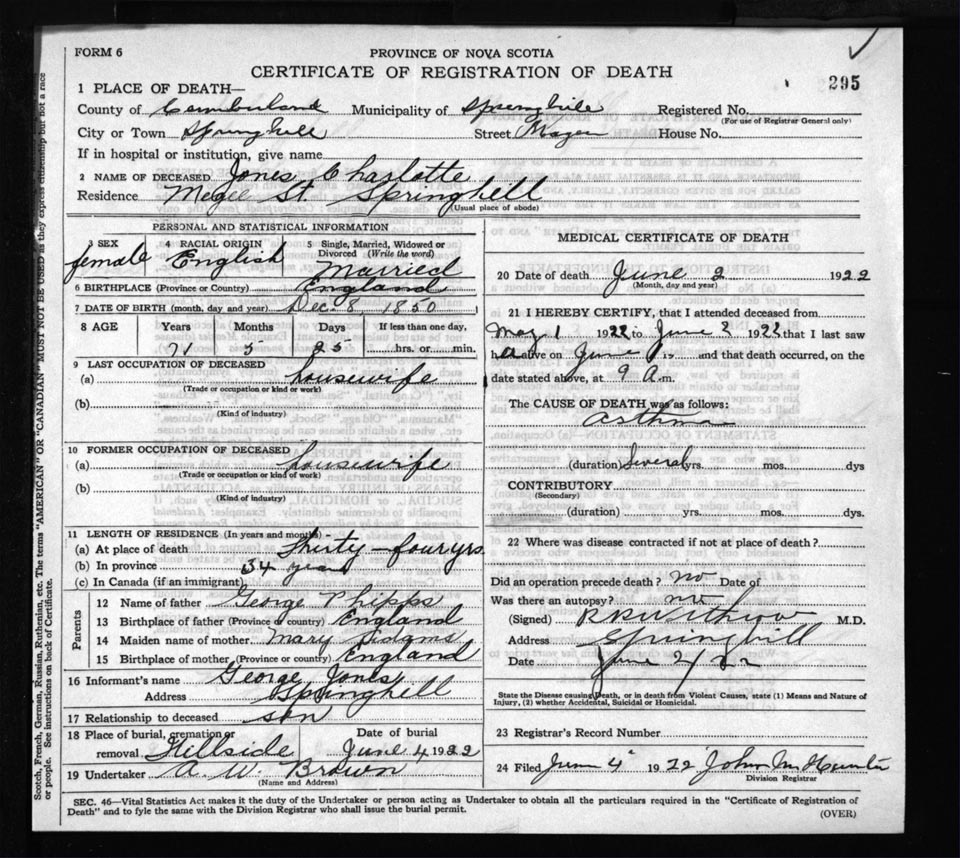 FORM 6
PROVINCE OF NOVA SCOTIA
CERTIFICATE OF REGISTRATION OF DEATH
295
1 PLACE OF DEATH—
County of Cumberland Municipality of Springhill Registered No.
(For use of Registrar General only)
City or Town Springhill Street House No.
If in hospital or institution, give name
2 NAME OF DECEASED Jones Charlotte
Residence St. Springhill
(Usual place of abode)
PERSONAL AND STATISTICAL INFORMATION
3 SEX 4 RACIAL ORIGIN 5 Single, Married, Widowed or Divorced (Write the word)
female English Married
6 BIRTHPLACE (Province or Country) England
7 DATE OF BIRTH (month, day and year) Dec. 8 1850
8 AGE Years Months Days If less than one day,
71 5 25 hrs. or min.
9 LAST OCCUPATION OF DECEASED
(a) housewife
(Trade or occupation or kind or work)
(b)
(Kind of industry)
10 FORMER OCCUPATION OF DECEASED
(a) housewife
(Trade or occupation or kind of work)
(b)
(Kind of industry)
11 LENGTH OF RESIDENCE (In years and months)
(a) At place of death Thirty-four yrs.
(b) In province 34 years
(c) In Canada (if an immigrant)
Parents
12 Name of father George Phipps
13 Birthplace of father (Province or country) England
14 Maiden name of mother Mary
15 Birthplace of mother (Province or country) England
16 Informant's name George Jones
Address Springhill
17 Relationship to deceased son
18 Place of burial, cremation or removal Hillside Date of burial June 4 1922
19 Undertaker A. W. Brown
(Name and Address)
MEDICAL CERTIFICATE OF DEATH
20 Date of death June 2 1922
(Month, day and year)
21 I HEREBY CERTIFY, that I attended deceased from
May 1 1922 to June 2 1922 that I last saw
alive on June 1 19 and that death occurred, on the
date stated above, at 9 A.m.
The CAUSE OF DEATH was as follows:
asthma
(duration) Several yrs. mos. dys
CONTRIBUTORY
(Secondary)
(duration) yrs. mos. dys.
22 Where was disease contracted if not at place of death?
Did an operation precede death? no Date of
Was there an autopsy? no
(Signed) M.D.
Address Springhill
Date June 2/22
State the Disease causing Death, or in death from Violent Causes, state (1) Means and Nature of
Injury, (2) whether Accidental, Suicidal or Homicidal.
23 Registrar's Record Number
24 Filed June 4 1922 John M Hunter
Division Registrar
SEC. 46—Vital Statistics Act makes it the duty of the Undertaker or person acting as Undertaker to obtain all the particulars required in the "Certificate of Registration of
Death" and to fyle the same with the Division Registrar who shall issue the burial permit.
(OVER)
Scotch, French, German, Russian, Ruthenian, etc. The terms "AMERICAN" OR "CANADIAN" MUST NOT BE USED as they express citizenship but not a race
or people. See instructions on back of Certificate.